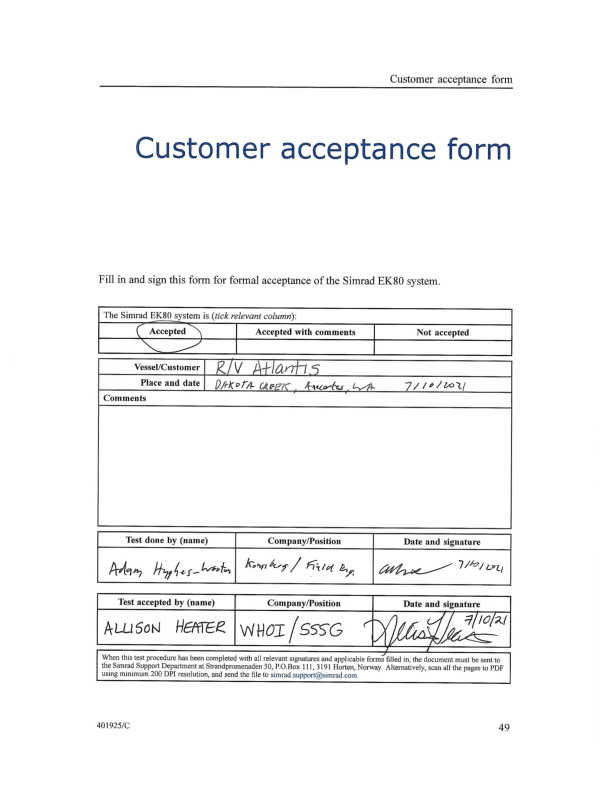 Customer acceptance form
Customer acceptance form
Fill in and sign this form for formal acceptance of the Simrad EK80 system.
The Simrad EK80 system is (tick relevant column):
Accepted Accepted with comments Not accepted
Vessel/Customer R/V Atlantis
Place and date DAKOTA CREEK, WA 7/10/2021
Comments
Test done by (name) Company/Position Date and signature
Adam Field Eng. 7/10/2021
Test accepted by (name) Company/Position Date and signature
ALLISON HEATER WHOI/SSSG 7/10/21
When this test procedure has been completed with all relevant signatures and applicable forms filled in, the document must be sent to
the Simrad Support Department at Strandpromenaden 50, P.O.Box 111, 3191 Horten, Norway. Alternatively, scan all the pages to PDF
using minimum 200 DPI resolution, and send the file to simrad.support@simrad.com.
401925/C 49